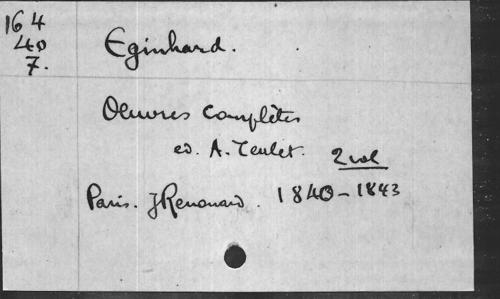 164
40
7.
Eginhard.
Oeuvres complètes
ed. A. Teulet. 2 vol
Paris. J Renouard. 1840-1843